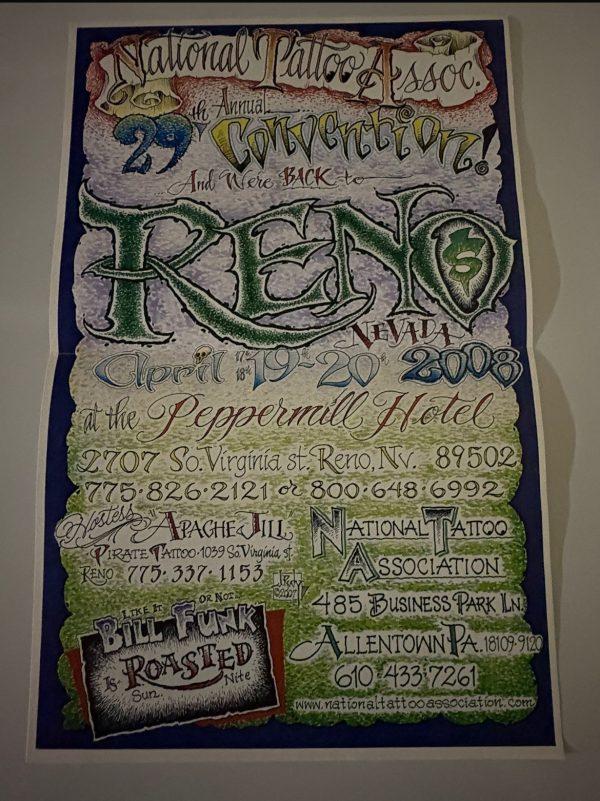 National Tattoo Assoc.
29th Annual
Convention!
...And We're BACK to
RENO
$
NEVADA
April 17th 18th 19th 20th 2008
at the Peppermill Hotel
2707 So. Virginia st. Reno, Nv. 89502
775·826·2121 or 800·648·6992
Hostess "APACHE JILL"
PIRATE TATTOO · 1039 So. Virginia st.
RENO 775·337·1153
NATIONAL TATTOO
ASSOCIATION
©2007
485 BUSINESS PARK LN.
ALLENTOWN PA. 18109·9120
610·433·7261
www.nationaltattooassociation.com
LIKE IT OR NOT...
BILL FUNK
Is ROASTED
Sun. Nite